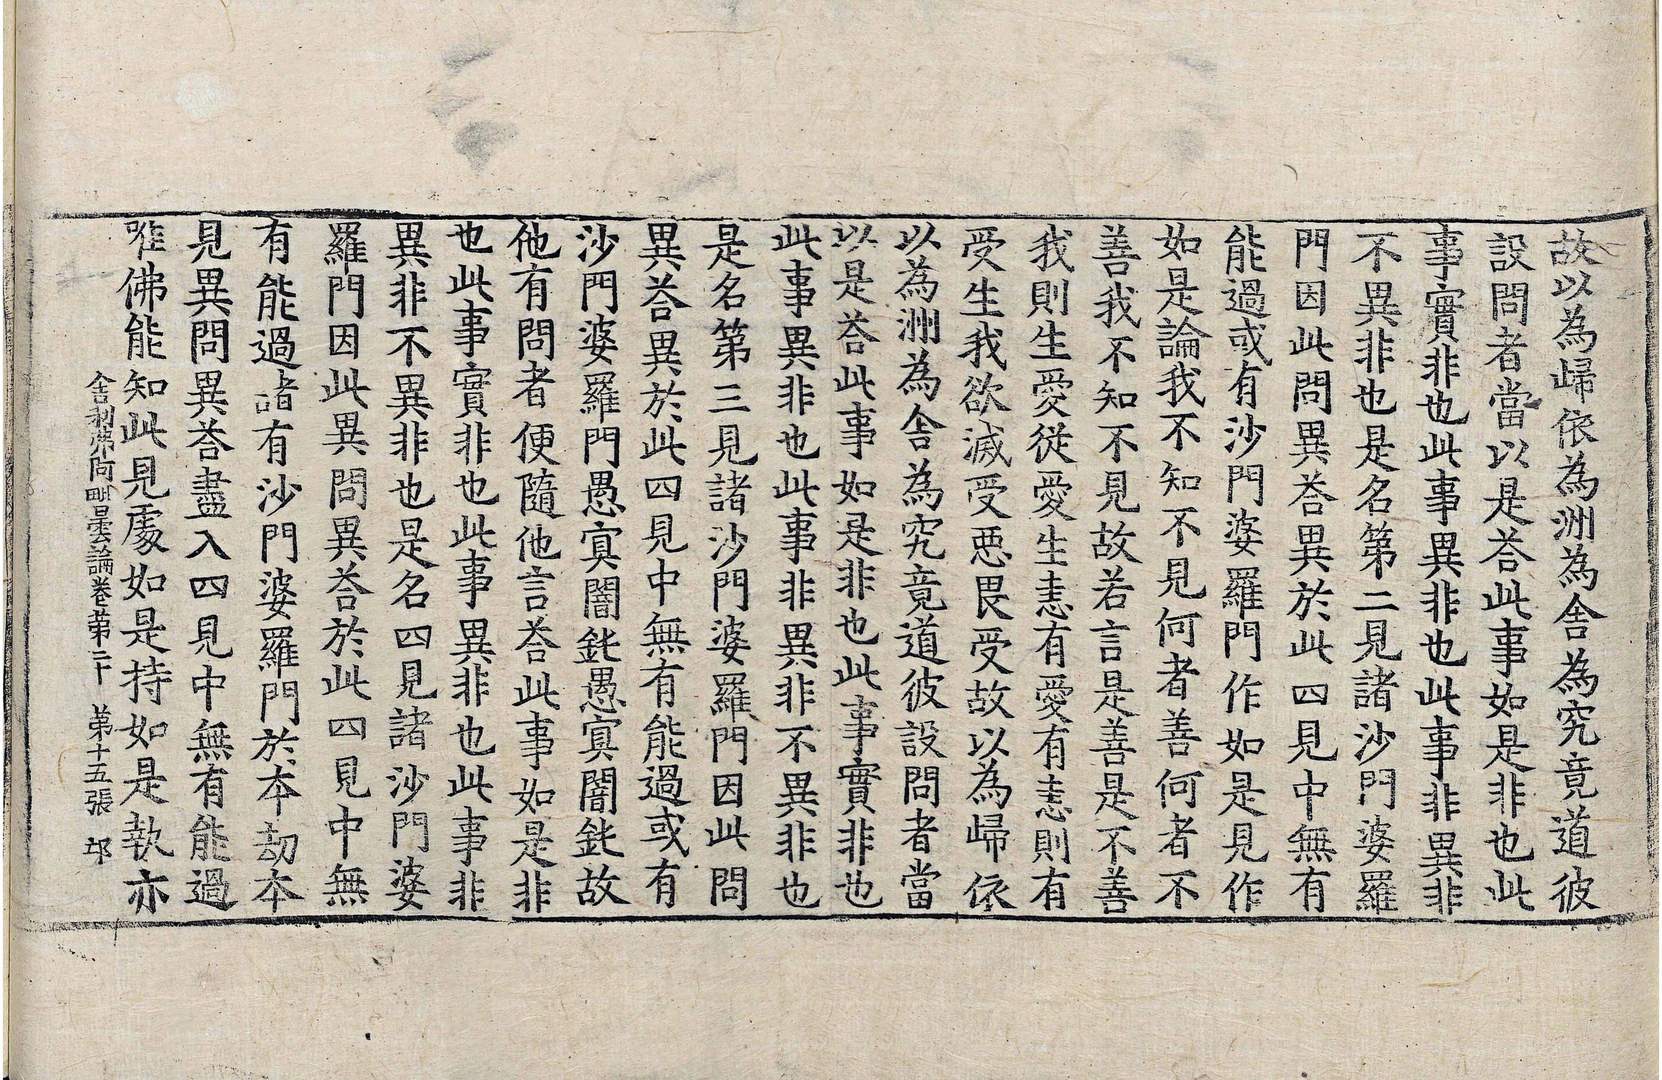 故以為歸依為洲為舍為究竟道彼
設問者當以是荅此事如是非也此
事實非也此事異非也此事非異非
不異非也是名第二見諸沙門婆羅
門因此問異荅異於此四見中無有
能過或有沙門婆羅門作如是見作
如是論我不知不見何者善何者不
善我不知不見故若言是善是不善
我則生愛從愛生恚有愛有恚則有
受生我欲滅受惡畏受故以為歸依
以為洲為舍為究竟道彼設問者當
以是荅此事如是非也此事實非也
此事異非也此事非異非不異非也
是名第三見諸沙門婆羅門因此問
異荅異於此四見中無有能過或有
沙門婆羅門愚寘闇鈍愚寘闇鈍故
他有問者便隨他言荅此事如是非
也此事實非也此事異非也此事非
異非不異非也是名四見諸沙門婆
羅門因此異問異荅於此四見中無
有能過諸有沙門婆羅門於本劫本
見異問異荅盡入四見中無有能過
唯佛能知此見處如是持如是執亦
舍利弗阿毗曇論卷第二十 第十五張 邙